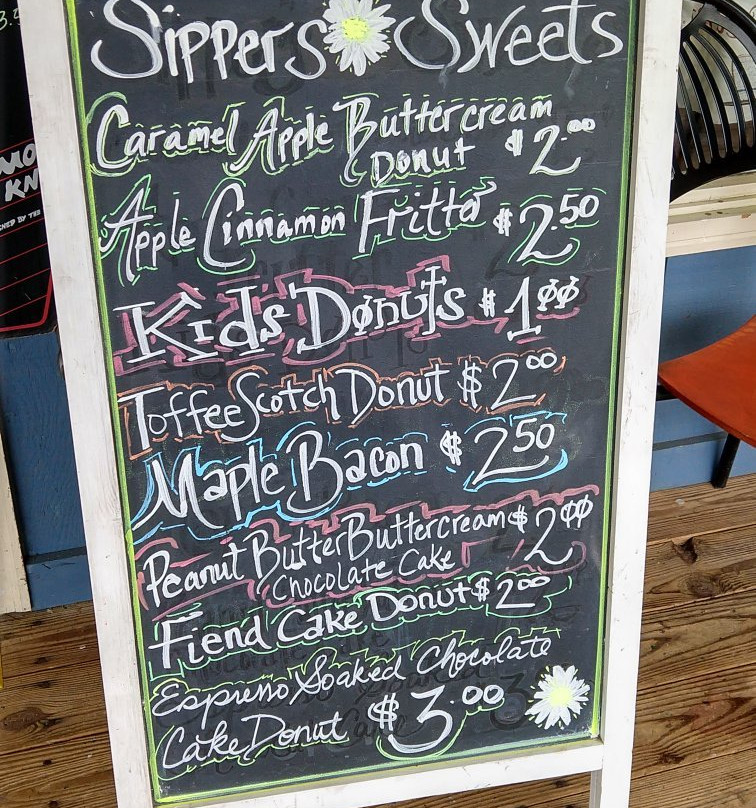 Sippers Sweets
Caramel Apple Buttercream
Donut $2.00
Apple Cinnamon Fritta $2.50
Kids Donuts $1.00
Toffee Scotch Donut $2.00
Maple Bacon $2.50
Peanut Butter Buttercream $2.00
Chocolate Cake
Fiend Cake Donut $2.00
Espresso Soaked Chocolate
Cake Donut $3.00